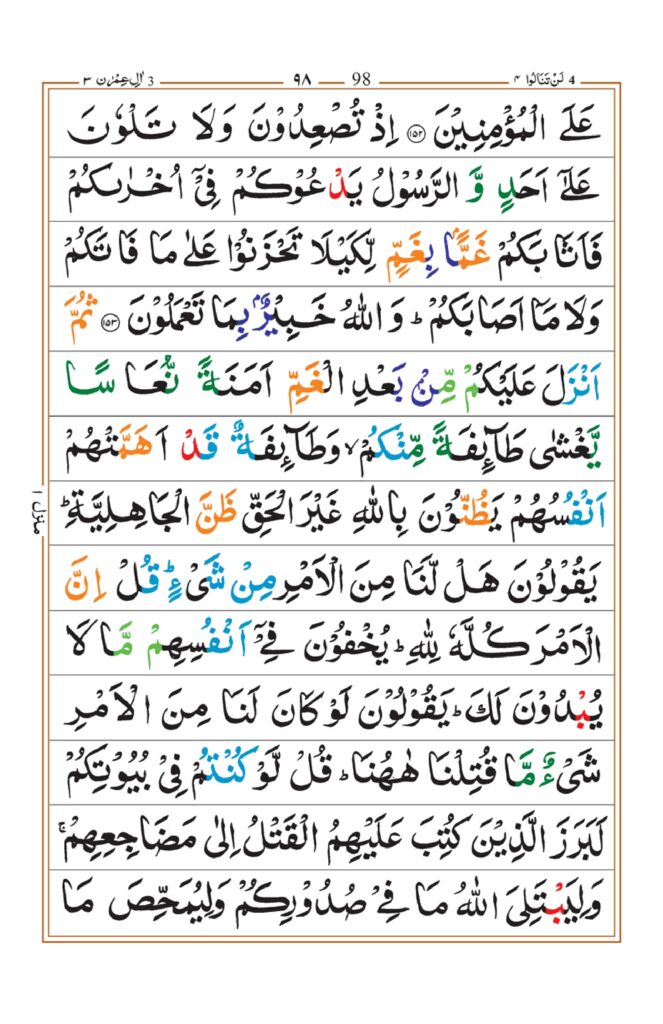 4 لَنْ تَنَالُوا ۴ 98 ۹۸ 3 اٰلِ عِمْرٰن ۳
عَلَى الْمُؤْمِنِيْنَ ۝۱۵۲ اِذْ تُصْعِدُوْنَ وَلَا تَلْوٗنَ
عَلٰٓى اَحَدٍ وَّ الرَّسُوْلُ يَدْعُوْكُمْ فِيْٓ اُخْرٰىكُمْ
فَاَثَابَكُمْ غَمًّۢا بِغَمٍّ لِّكَيْلَا تَحْزَنُوْا عَلٰى مَا فَاتَكُمْ
وَلَا مَاۤ اَصَابَكُمْ ؕ وَ اللّٰهُ خَبِيْرٌۢ بِمَا تَعْمَلُوْنَ ۝۱۵۳ ثُمَّ
اَنْزَلَ عَلَيْكُمْ مِّنْۢ بَعْدِ الْغَمِّ اَمَنَةً نُّعَاسًا
يَّغْشٰى طَآىِٕفَةً مِّنْكُمْ ۙ وَطَآىِٕفَةٌ قَدْ اَهَمَّتْهُمْ
اَنْفُسُهُمْ يَظُنُّوْنَ بِاللّٰهِ غَيْرَ الْحَقِّ ظَنَّ الْجَاهِلِيَّةِ ؕ
يَقُوْلُوْنَ هَلْ لَّنَا مِنَ الْاَمْرِ مِنْ شَيْءٍ ؕ قُلْ اِنَّ
الْاَمْرَ كُلَّهٗ لِلّٰهِ ؕ يُخْفُوْنَ فِيْٓ اَنْفُسِهِمْ مَّا لَا
يُبْدُوْنَ لَكَ ؕ يَقُوْلُوْنَ لَوْ كَانَ لَنَا مِنَ الْاَمْرِ
شَيْءٌ مَّا قُتِلْنَا هٰهُنَا ؕ قُلْ لَّوْ كُنْتُمْ فِيْ بُيُوْتِكُمْ
لَبَرَزَ الَّذِيْنَ كُتِبَ عَلَيْهِمُ الْقَتْلُ اِلٰى مَضَاجِعِهِمْ ۚ
وَلِيَبْتَلِيَ اللّٰهُ مَا فِيْ صُدُوْرِكُمْ وَلِيُمَحِّصَ مَا
منزل ۱